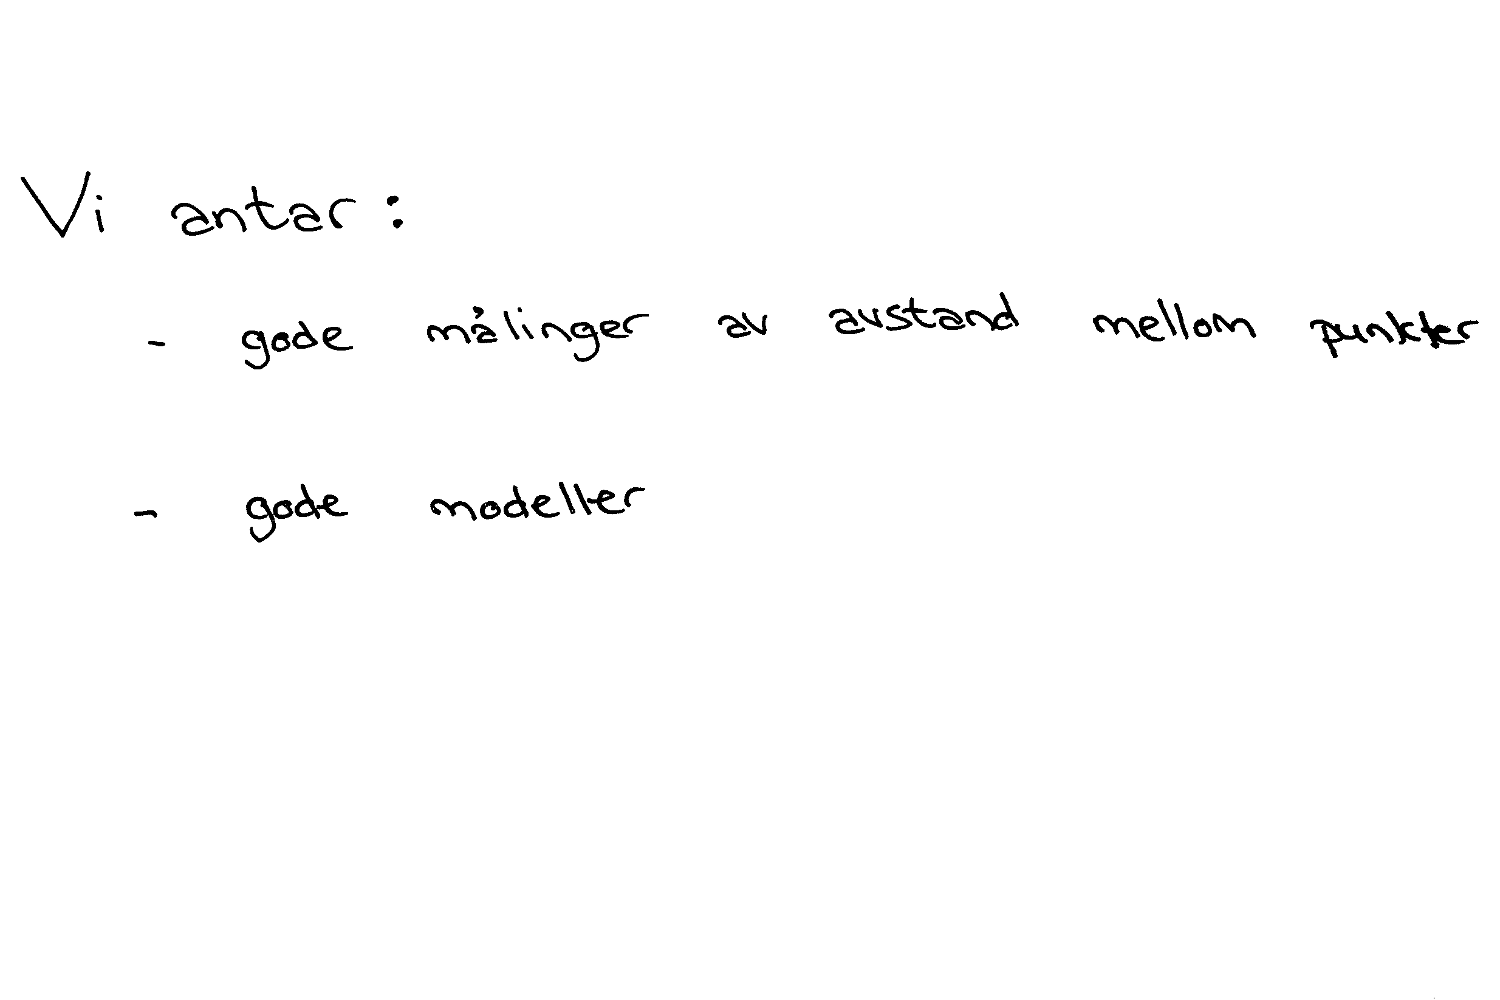 Vi antar:
- gode målinger av avstand mellom punkter
- gode modeller